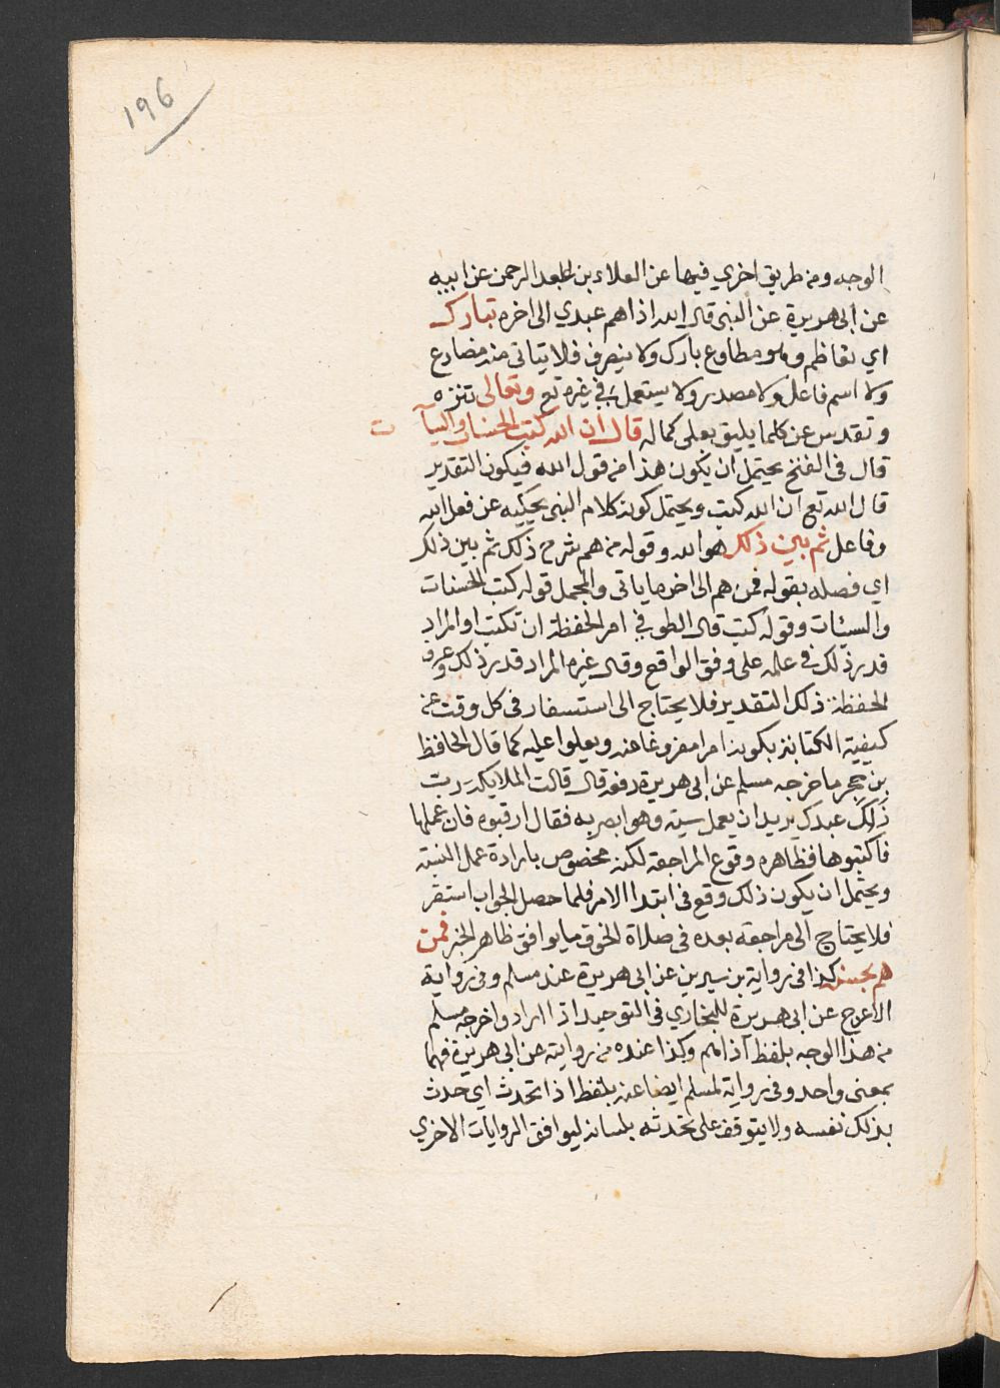 196
الوجه ومن طريق اخري فيها عن العلاء بن عبد الرحمن عن ابيه
عن ابي هريرة عن النبي قال الله اذا هم عبدي الى اخره تبارك
اي تعاظم وهو مطاوع بارك ولا ينصرف فلا يتاتى منه مضارع
ولا اسم فاعل ولا مصدر ولا يستعمل في غيره تع وتعالى تنزه
وتقدس عن كلما يليق بعلى كماله قال ان الله كتب الحسنات والسيآت
قال في الفتح يحتمل ان يكون هذا من قول الله فيكون التقدير
قال الله تع ان الله كتب ويحتمل كونه كلام النبي يحكيه عن فعل الله
وفاعل ثم بين ذلك هو الله وقوله من هم شرح ذلك ثم بين ذلك
اي فصله بقوله فمن هم الى اخر ما ياتي والمجمل قوله كتب الحسنات
والسيئات وقوله كتب قال الطوفي امر الحفظة ان تكتب او المراد
قدر ذلك في علمه على وفق الواقع وقال غيره المراد قدر ذلك وعرف
الحفظة ذلك التقدير فلا يحتاج الى استسفار في كل وقت عن
كيفية الكتابة بكونه امرا مفروغا عنه ويعلوا عليه كما قال الحافظ
بن حجر ما خرجه مسلم عن ابي هريرة رفعه قال قالت الملايكة رب
ذلك عبدك يريد ان يعمل سيئة وهو ابصر به فقال ارقبوه فان عملها
فاكتبوها فظاهره وقوع المراجعة لكنه مخصوص بارادة عمل السيئة
ويحتمل ان يكون ذلك وقع في ابتدا الامر فلما حصل الجواب استقر
فلا يحتاج الى مراجعة بعده في صلاة الخوف ما يوافق ظاهر الخبر فمن
هم بحسنة كذا في رواية بن سيرين عن ابي هريرة عند مسلم وفي رواية
الاعرج عن ابي هريرة للبخاري في التوحيد اذا اراد واخرجه مسلم
من هذا الوجه بلفظ اذا هم وكذا عنده من روايته عن ابي هريرة فهما
بمعنى واحد وفي رواية لمسلم ايضا عنه بلفظ اذا تحدث اي حدث
بذلك نفسه ولا يتوقف على تحدثه بلسانه ليوافق الروايات الاخري